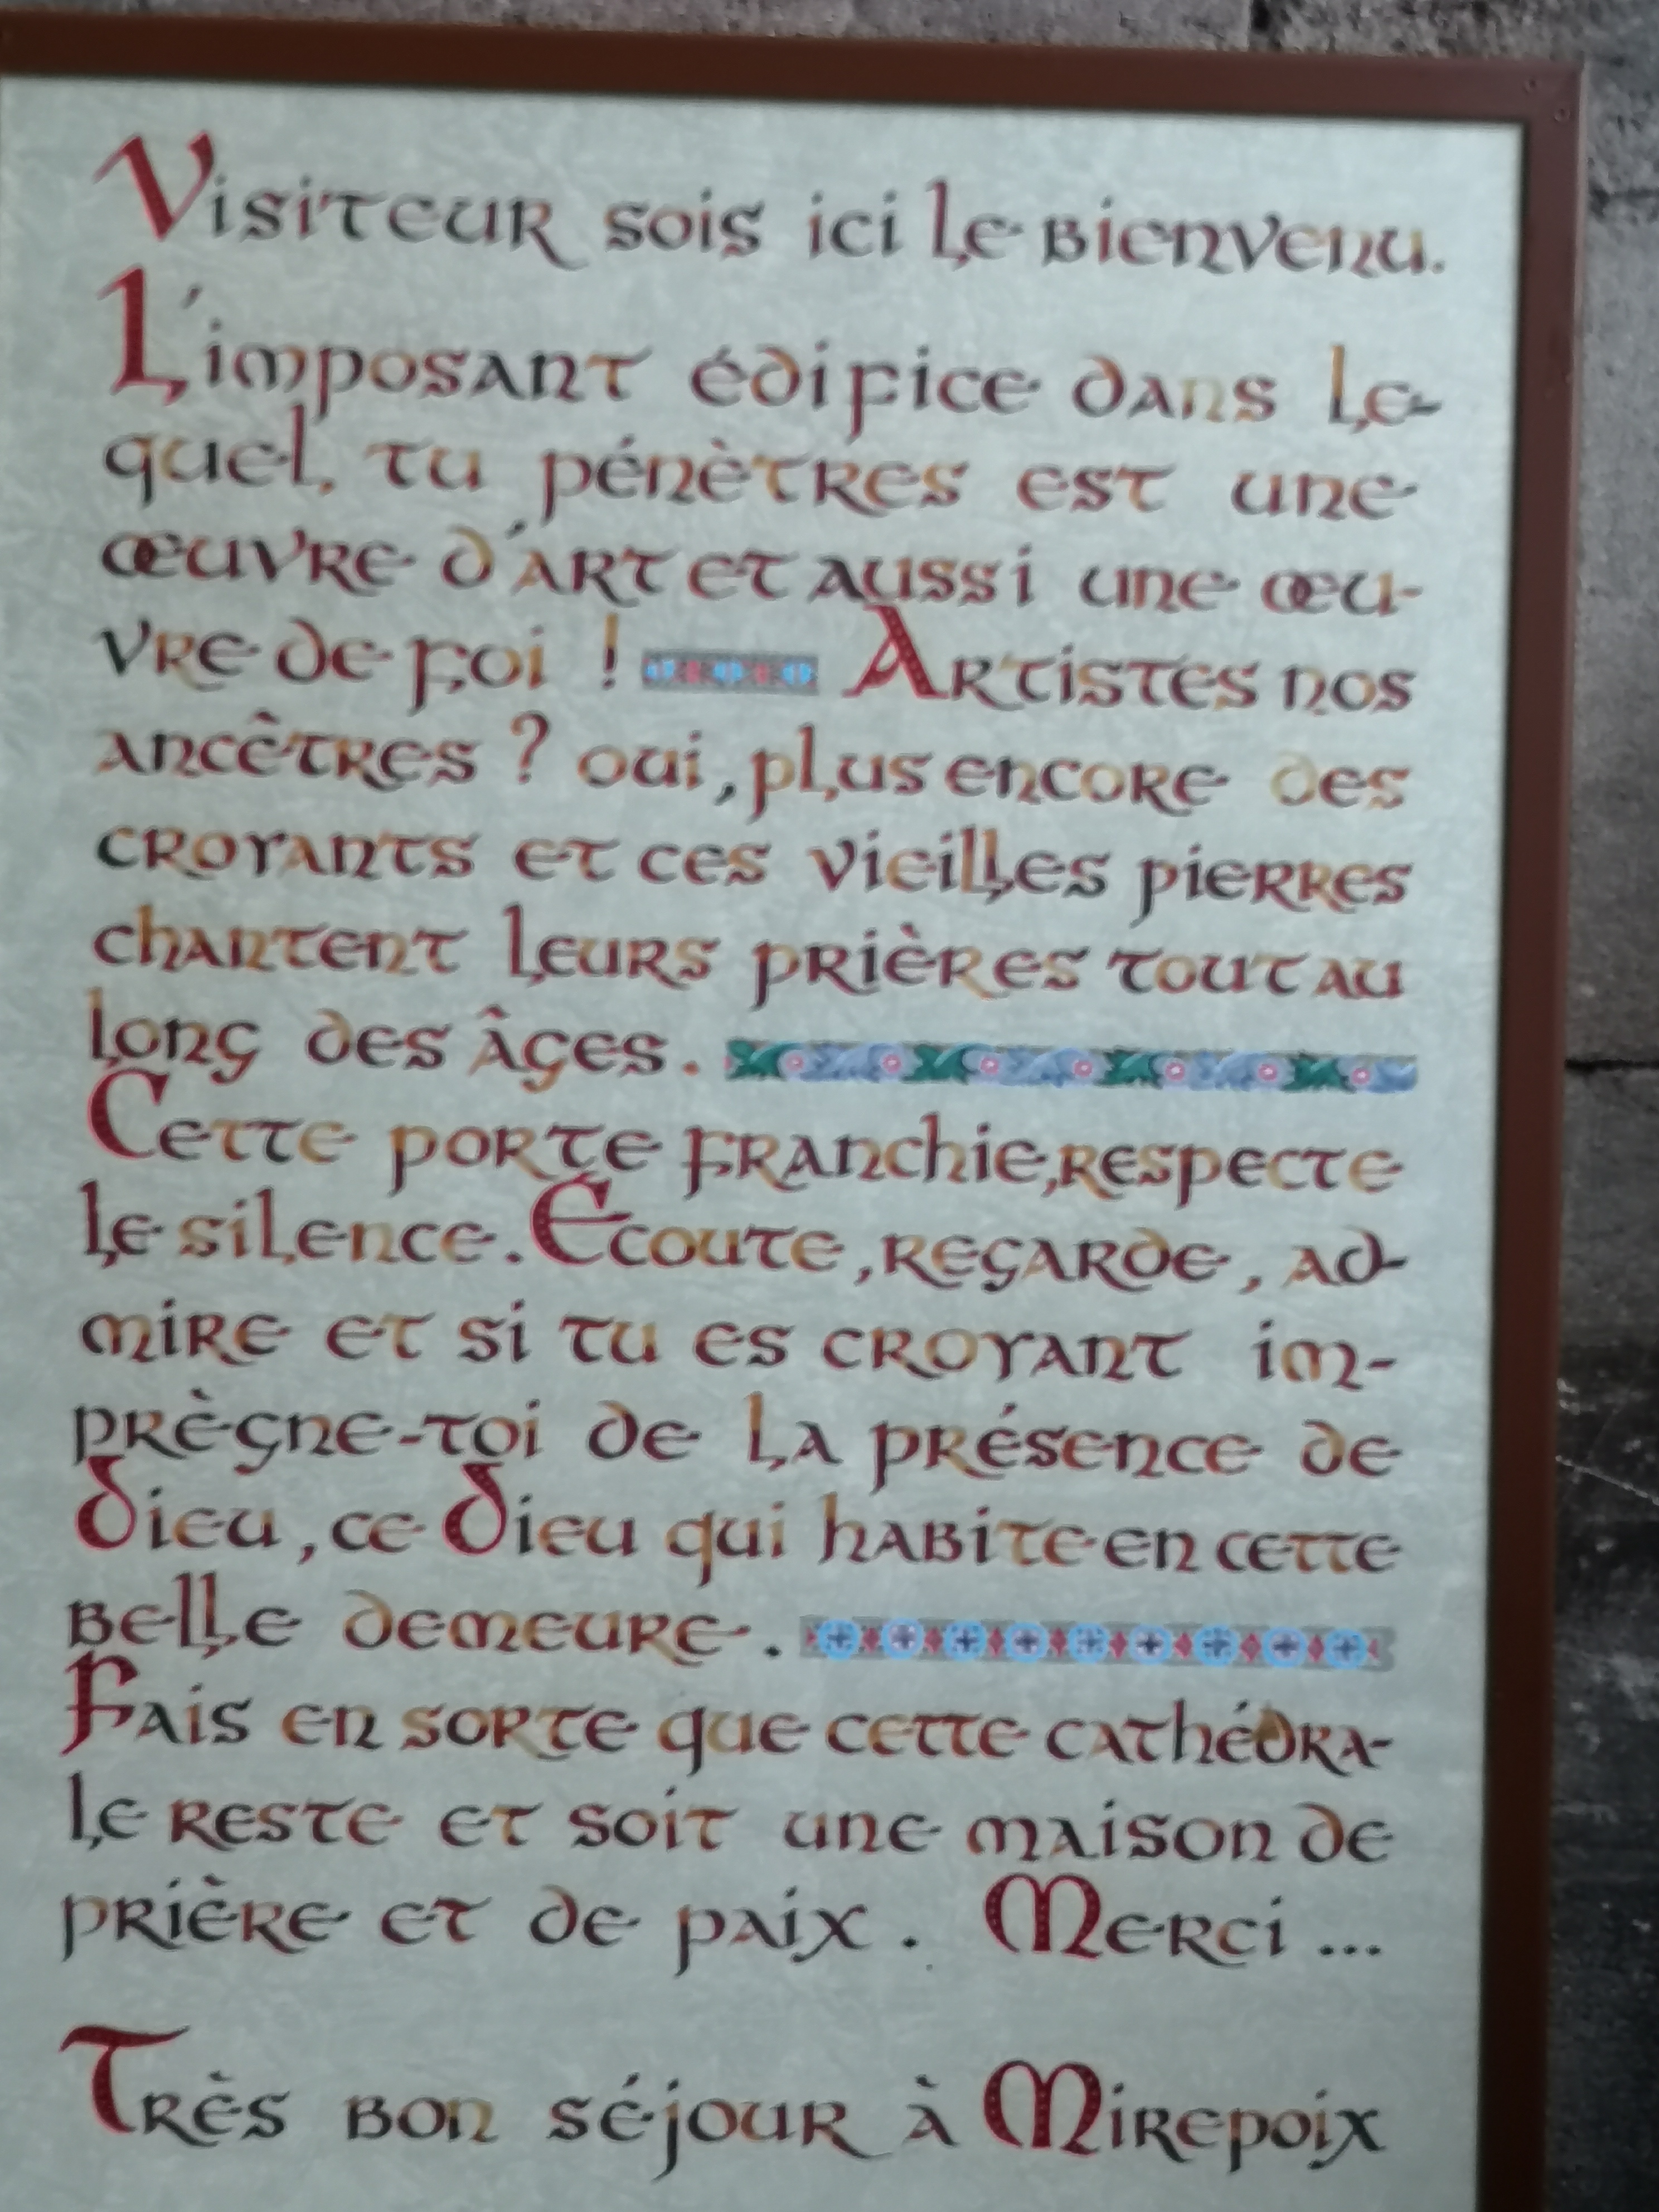 Visiteur sois ici le bienvenu.
L'imposant édifice dans le-
quel tu pénètres est une
œuvre d'art et aussi une œu-
vre de foi ! Artistes nos
ancêtres ? oui, plus encore des
croyants et ces vieilles pierres
chantent leurs prières tout au
long des âges.
Cette porte franchie, respecte
le silence. Ecoute, regarde, ad-
mire et si tu es croyant im-
prègne-toi de la présence de
Dieu, ce Dieu qui habite en cette
belle demeure.
Fais en sorte que cette cathédra-
le reste et soit une maison de
prière et de paix. Merci ...
Très bon séjour à Mirepoix